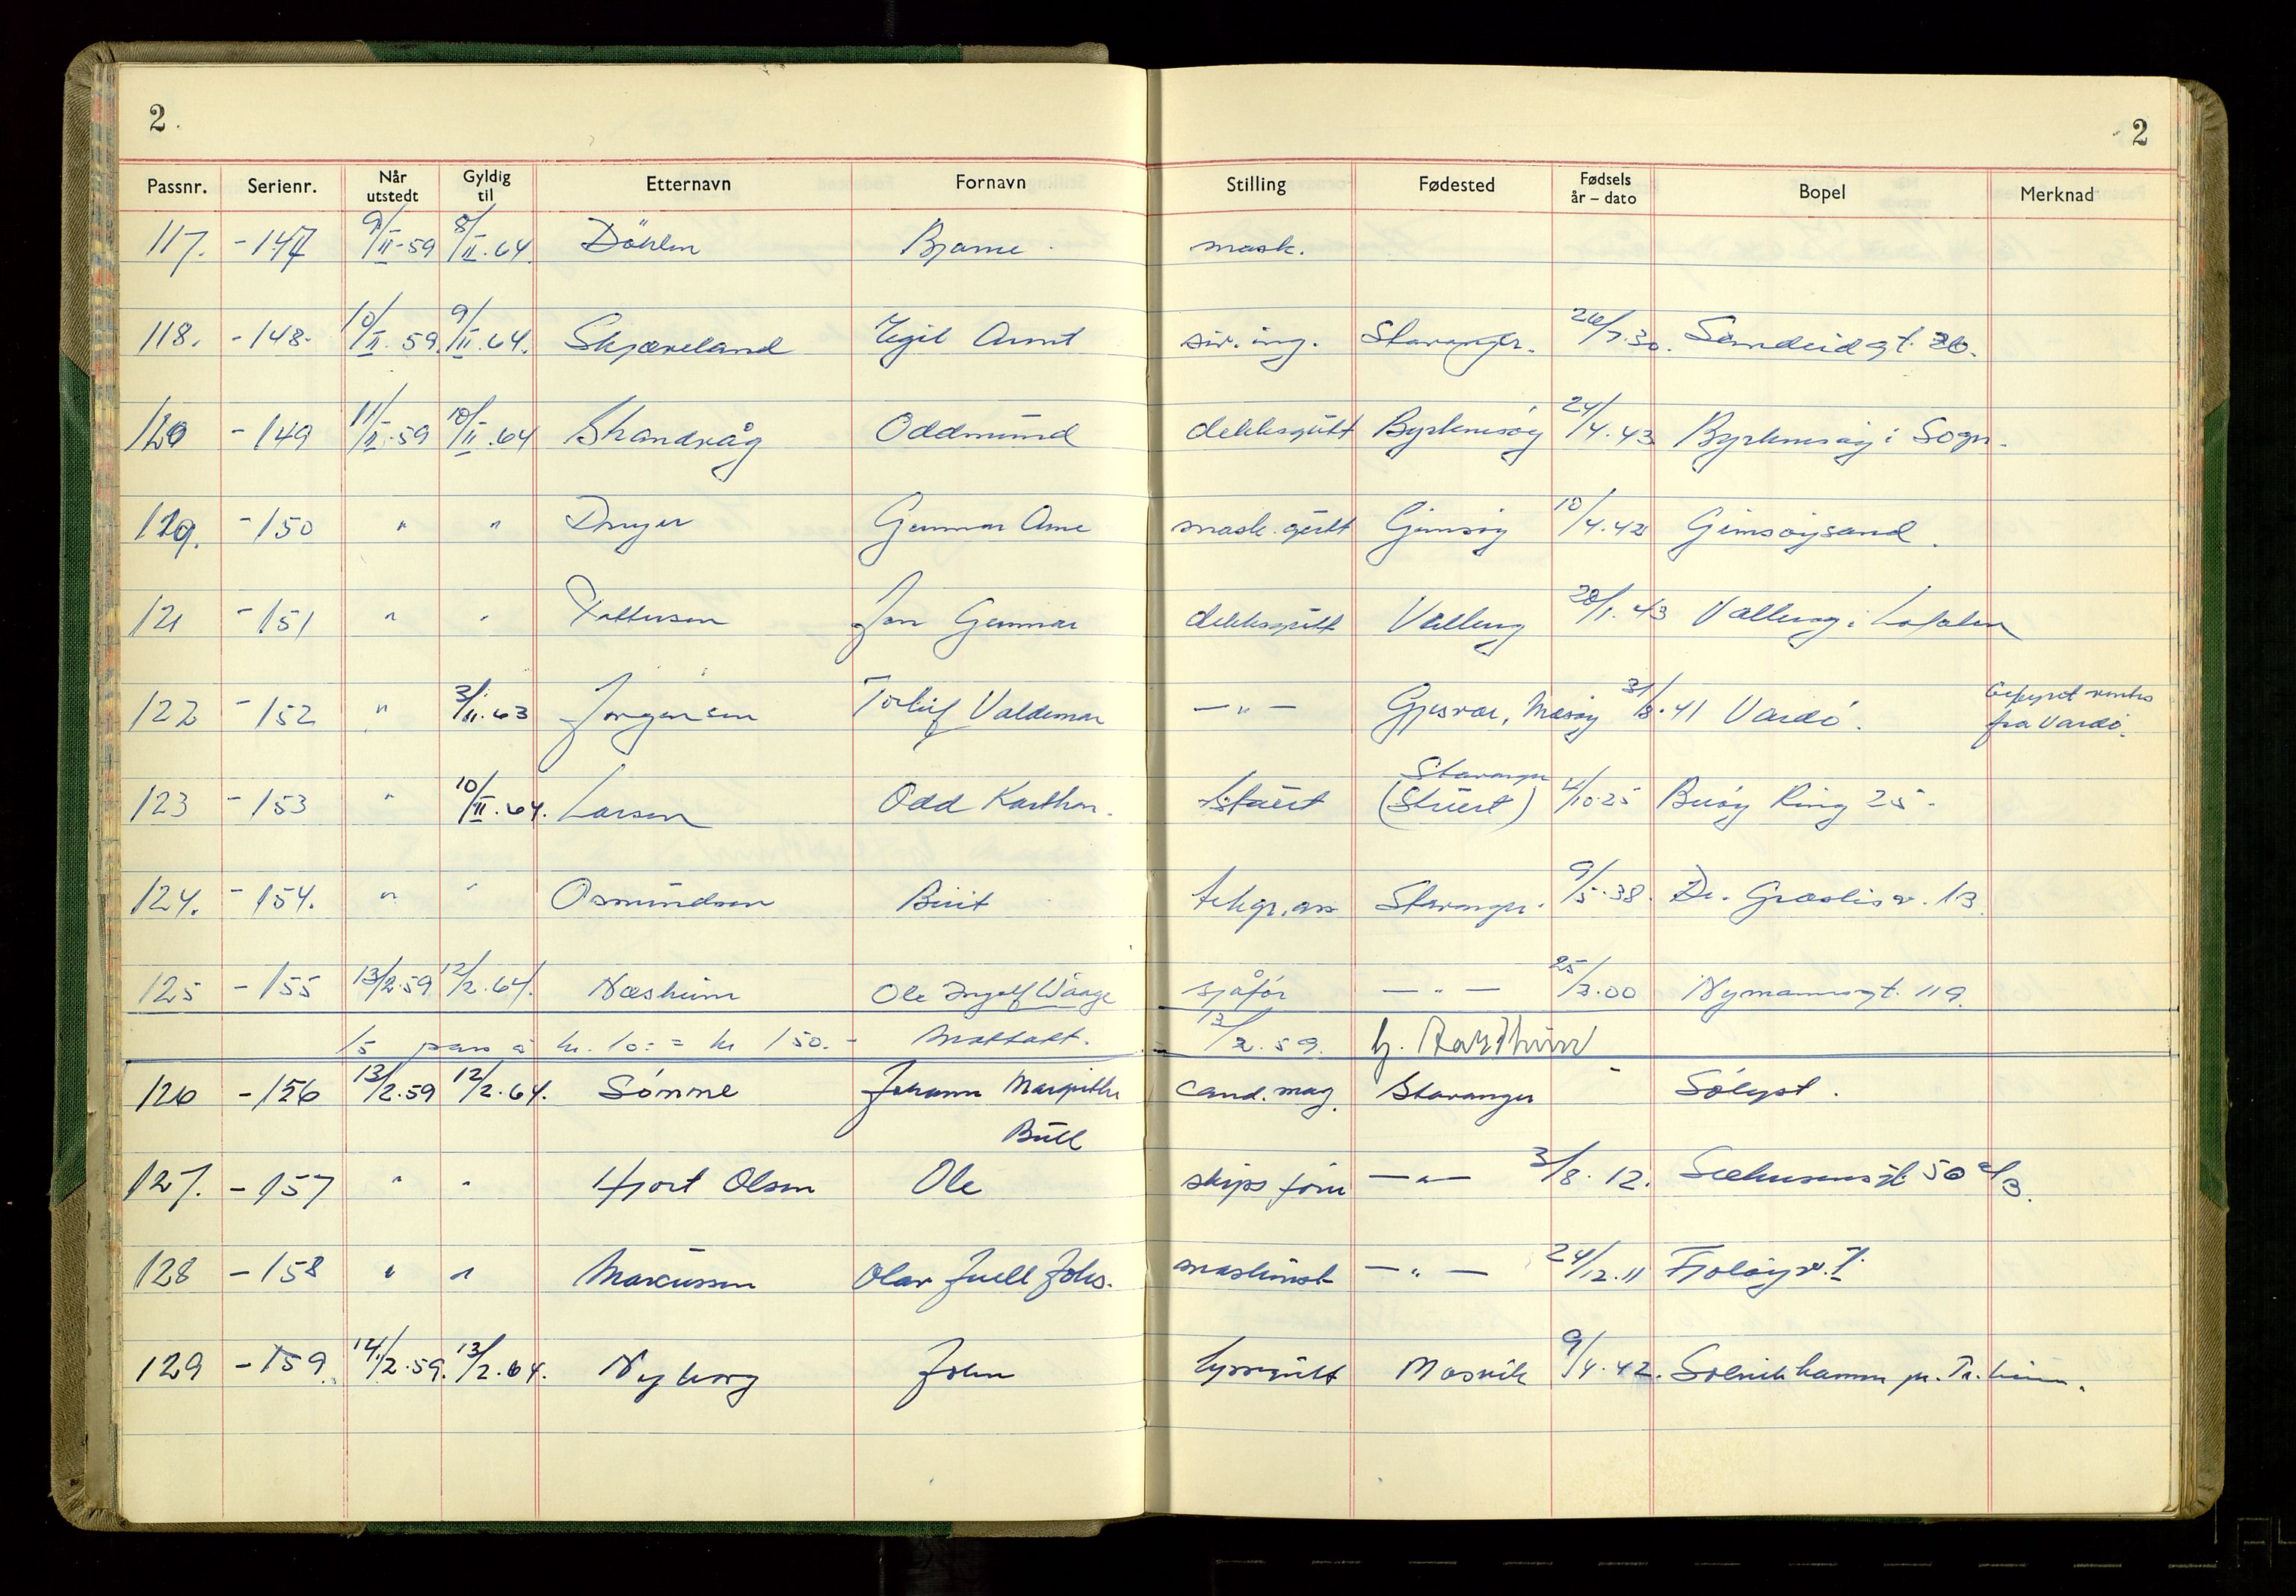 2.
2
Passnr. Serienr. Når utstedt Gyldig til Etternavn Fornavn Stilling Fødested Fødsels år – dato Bopel Merknad
117. -147 9/II-59 8/II.64. Döhlen Bjarne. mask.
118. -148- 10/II.59. 9/II.64. Skjæveland Egil Arnt siv.ing. Stavanger. 26/7.30. Sandeidgt. 26.
120 -149 11/II.59 10/II.64 Strandvåg Oddmund dekksgutt Byrknesøy 24/4.43 Byrknesøy i Sogn.
119. -150 " " Dreyer Gunnar Arne mask.gutt Gimsøy 10/4.42 Gimsøysand.
121 -151 " " Pettersen Jan Gunnar dekksgutt Valberg 20/1.43 Valberg i Lofoten
122 -152 " 3/II.63 Jørgensen Torleif Valdemar —"— Gjesvær, Måsøy 31/8.41 Vardø. Gebyret ventes
fra Vardø.
Stavanger
123 -153 " 10/II.64. Larsen Odd Karthon. Stuert (Stuert) 4/10.25 Buøy Ring 25.
124. -154. " " Osmundsen Berit telgr.ass Stavanger. 9/5.38. Dr. Græslis v. 13
125 -155 13/2.59 12/2.64. Næsheim Ole Ingolf Waage sjåfør —"— 25/3.00 Nymannsgt. 119.
15 pass à kr. 10:= kr 150.- Mottatt. 13/2.59.
126 -156 13/2.59 12/2.64. Sømme Johanne Margrethe cand.mag. Stavanger Sølyst.
Bull
127. -157 " " Hjort Olsen Ole skipsfører —"— 3/8.12. Seehusensgt. 50
128 -158 " " Marcussen Olav Juell Johs. maskinist —"— 24/12.11 Fjøløyv. 7.
129 -159. 14/2.59. 13/2.64. Nyborg John byssgutt Mosvik 9/4.42. pr. Tr.heim.